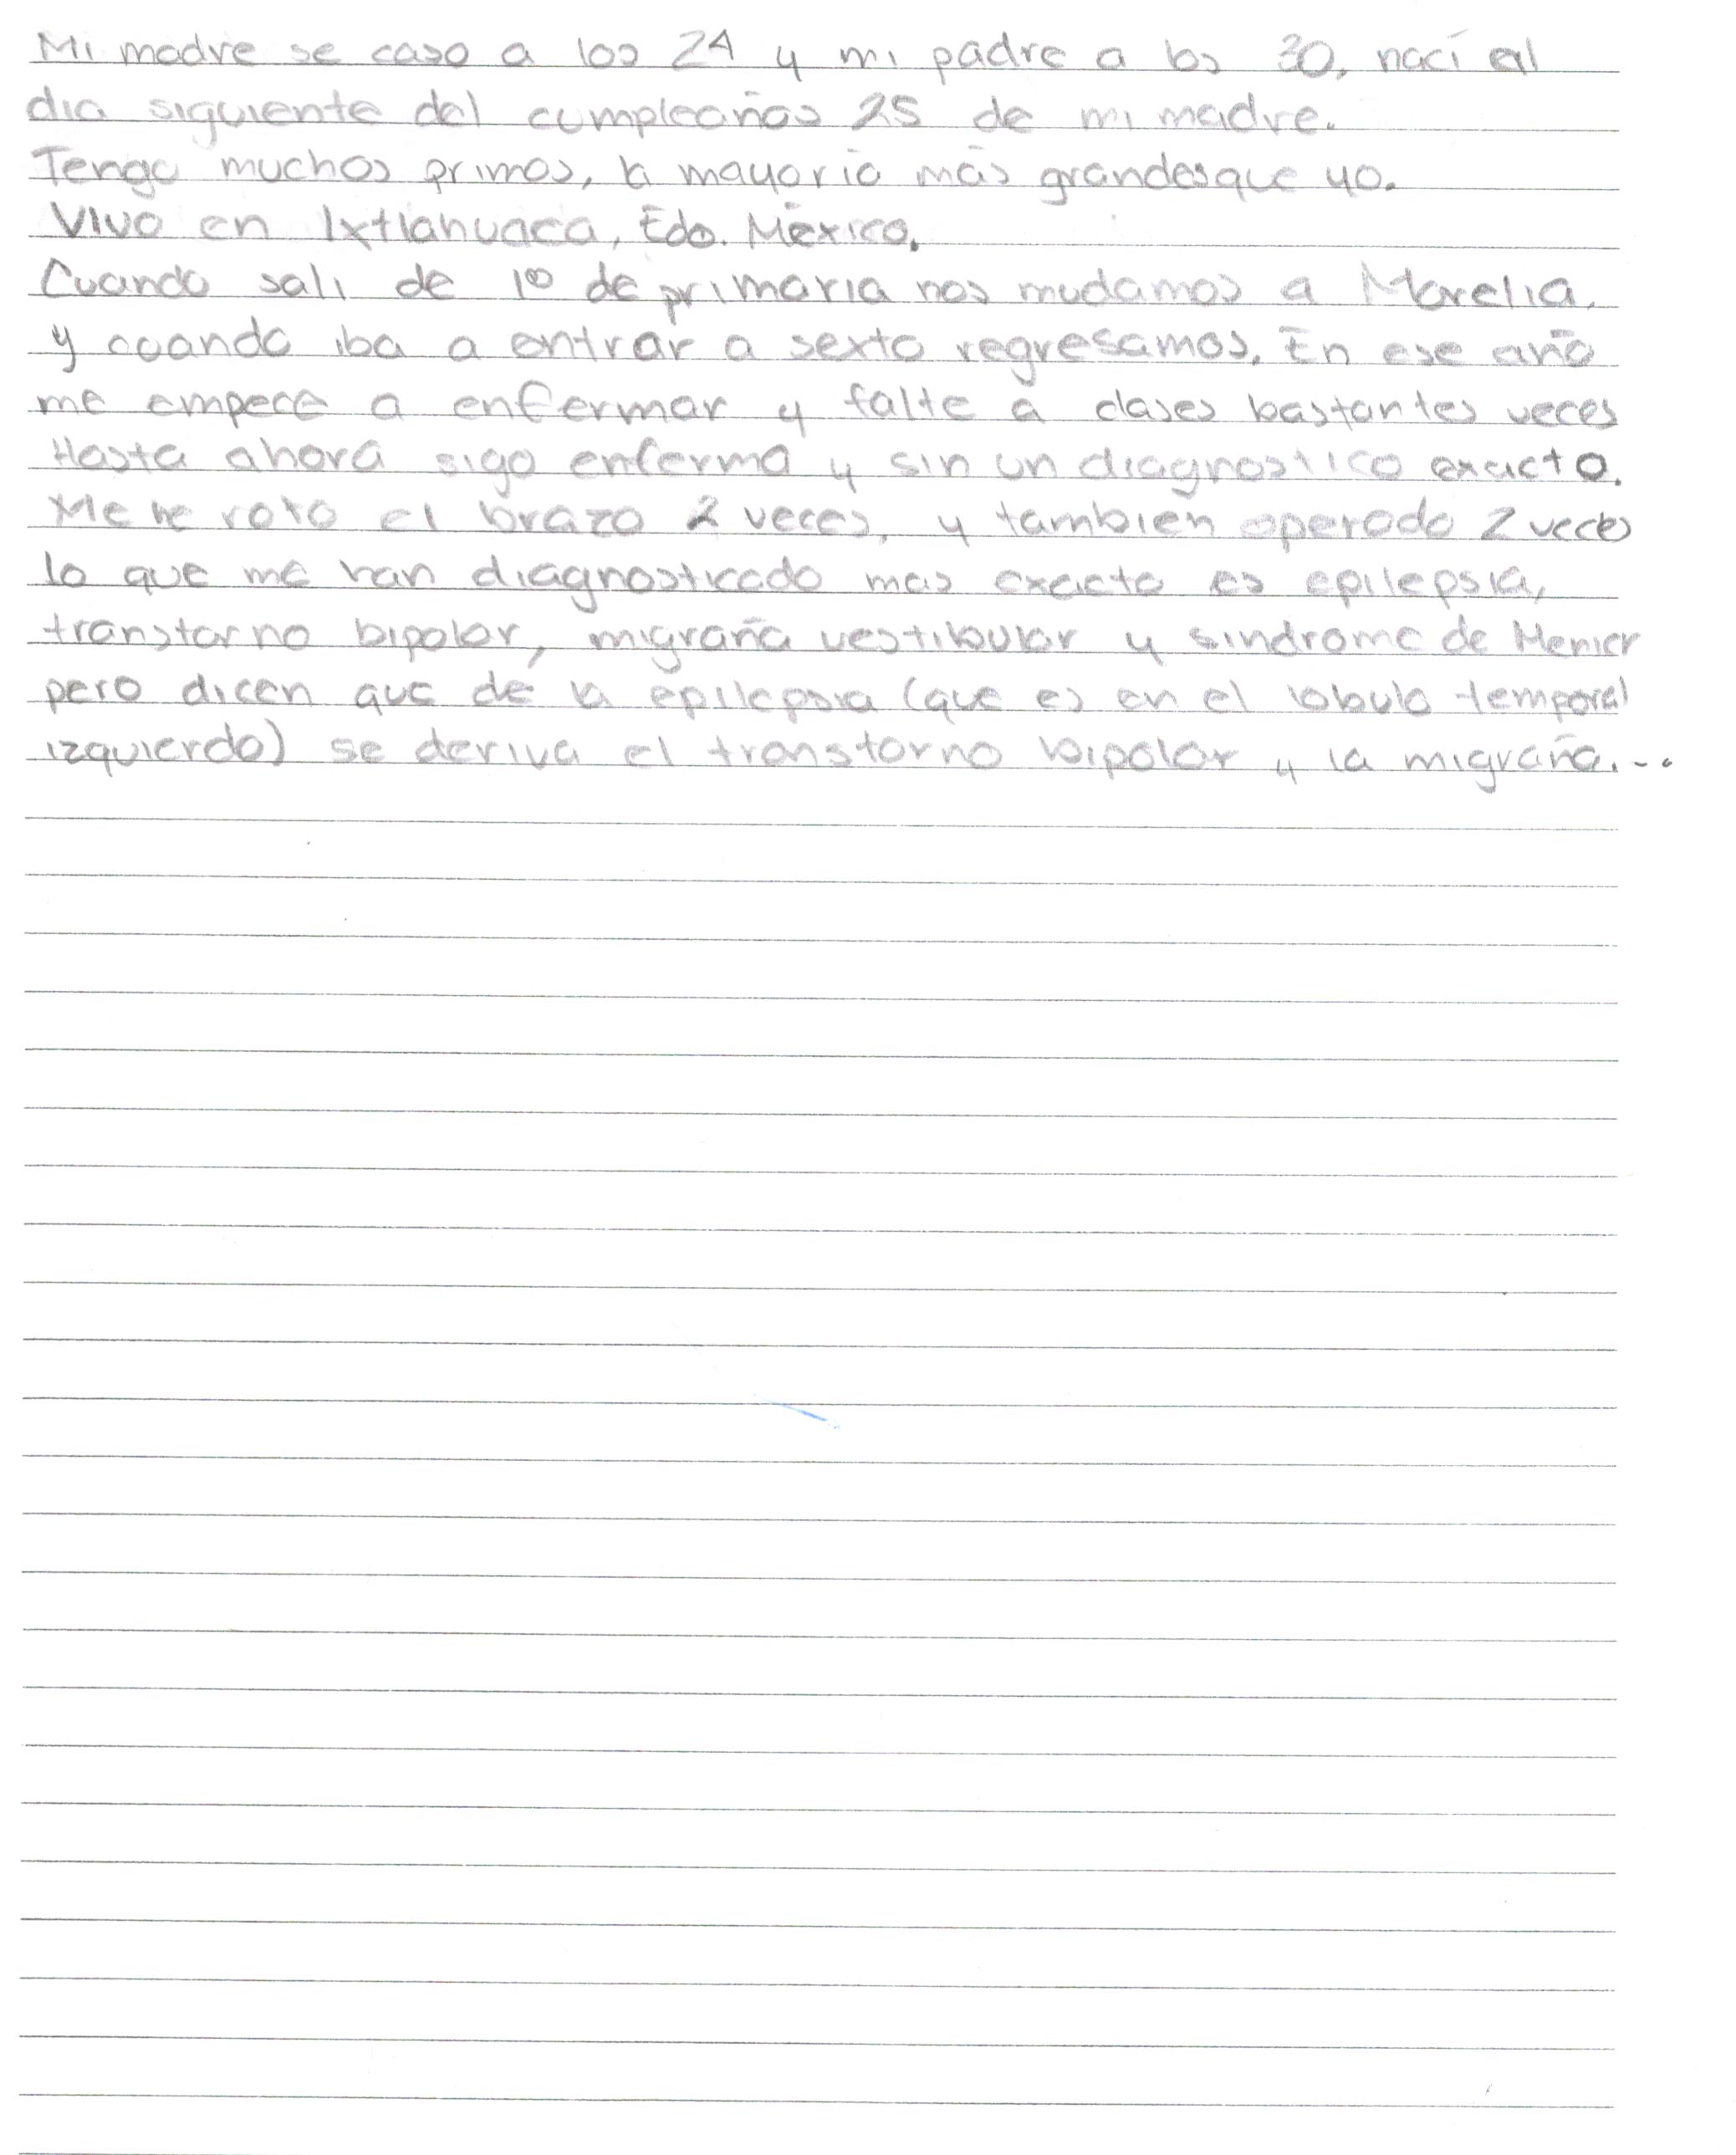 Mi madre se caso a los 24 y mi padre a los 30, nací al
dia siguiente del cumpleaños 25 de mi madre.
Tengo muchos primos, la mayoria más grandes que yo.
Vivo en Ixtlahuaca, Edo. México.
Cuando sali de 1º de primaria nos mudamos a Morelia,
y cuando iba a entrar a sexto regresamos. En ese año
me empece a enfermar y falte a clases bastantes veces
Hasta ahora sigo enferma y sin un diagnostico exacto.
Me he roto el brazo 2 veces, y tambien operado 2 veces
lo que me han diagnosticado mas exacto es epilepsia,
transtorno bipolar, migraña vestibular y sindrome de Menier
pero dicen que de la epilepsia (que es en el lobulo temporal
izquierdo) se deriva el transtorno bipolar y la migraña...